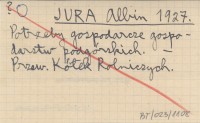 ? JURA Albin 1927.
Potrzeby gospodarcze gospo-
darstw podgórskich.
Przew. Kółek Rolniczych.
BT/023/1108